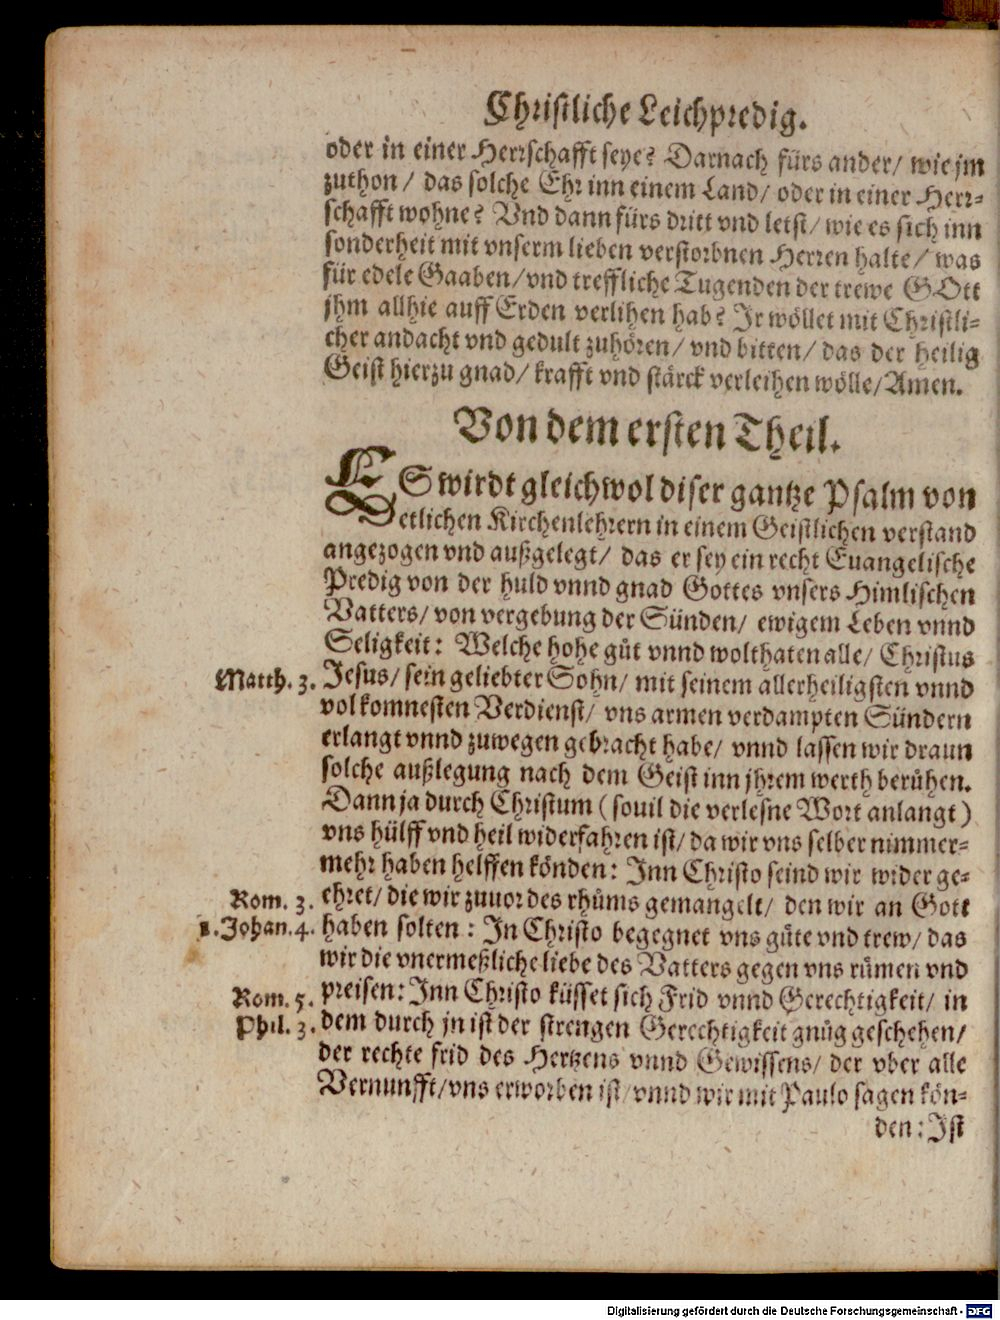 Christliche Leichpredig.
oder in einer Herrschafft seye? Darnach fürs ander/ wie jm
zuthon/ das solche Ehr inn einem Land/ oder in einer Herr-
schafft wohne? Vnd dann fürs dritt vnd letst/ wie es sich inn
sonderheit mit vnserm lieben verstorbnen Herren halte/ was
für edele Gaaben/ vnd treffliche Tugenden der trewe GOtt
jhm allhie auff Erden verlihen hab? Jr wöllet mit Christli-
cher andacht vnd gedult zuhören/ vnd bitten/ das der heilig
Geist hierzu gnad/ krafft vnd stärck verleihen wölle/ Amen.
Von dem ersten Theil.
ES wirdt gleichwol diser gantze Psalm von
etlichen Kirchenlehrern in einem Geistlichen verstand
angezogen vnd außgelegt/ das er sey ein recht Euangelische
Predig von der huld vnnd gnad Gottes vnsers Himlischen
Vatters/ von vergebung der Sünden/ ewigem Leben vnnd
Seligkeit: Welche hohe güt vnnd wolthaten alle/ Christus
Matth. 3. Jesus/ sein geliebter Sohn/ mit seinem allerheiligsten vnnd
volkomnesten Verdienst/ vns armen verdampten Sündern
erlangt vnnd zuwegen gebracht habe/ vnnd lassen wir draun
solche außlegung nach dem Geist inn jhrem werth berühen.
Dann ja durch Christum (souil die verlesne Wort anlangt)
vns hülff vnd heil widerfahren ist/ da wir vns selber nimmer-
mehr haben helffen könden: Inn Christo seind wir wider ge-
Rom. 3. ehret/ die wir zuuor des rhůms gemangelt/ den wir an Gott
1. Johan. 4. haben solten: In Christo begegnet vns güte vnd trew/ das
wir die vnermeßliche liebe des Vatters gegen vns rümen vnd
Rom. 5. preisen: Inn Christo küsset sich Frid vnnd Gerechtigkeit/ in
Phil. 3. dem durch jn ist der strengen Gerechtigkeit gnůg geschehen/
der rechte frid des Hertzens vnnd Gewissens/ der vber alle
Vernunfft/ vns erworben ist/ vnnd wir mit Paulo sagen kön-
den: Ist
Digitalisierung gefördert durch die Deutsche Forschungsgemeinschaft - DFG